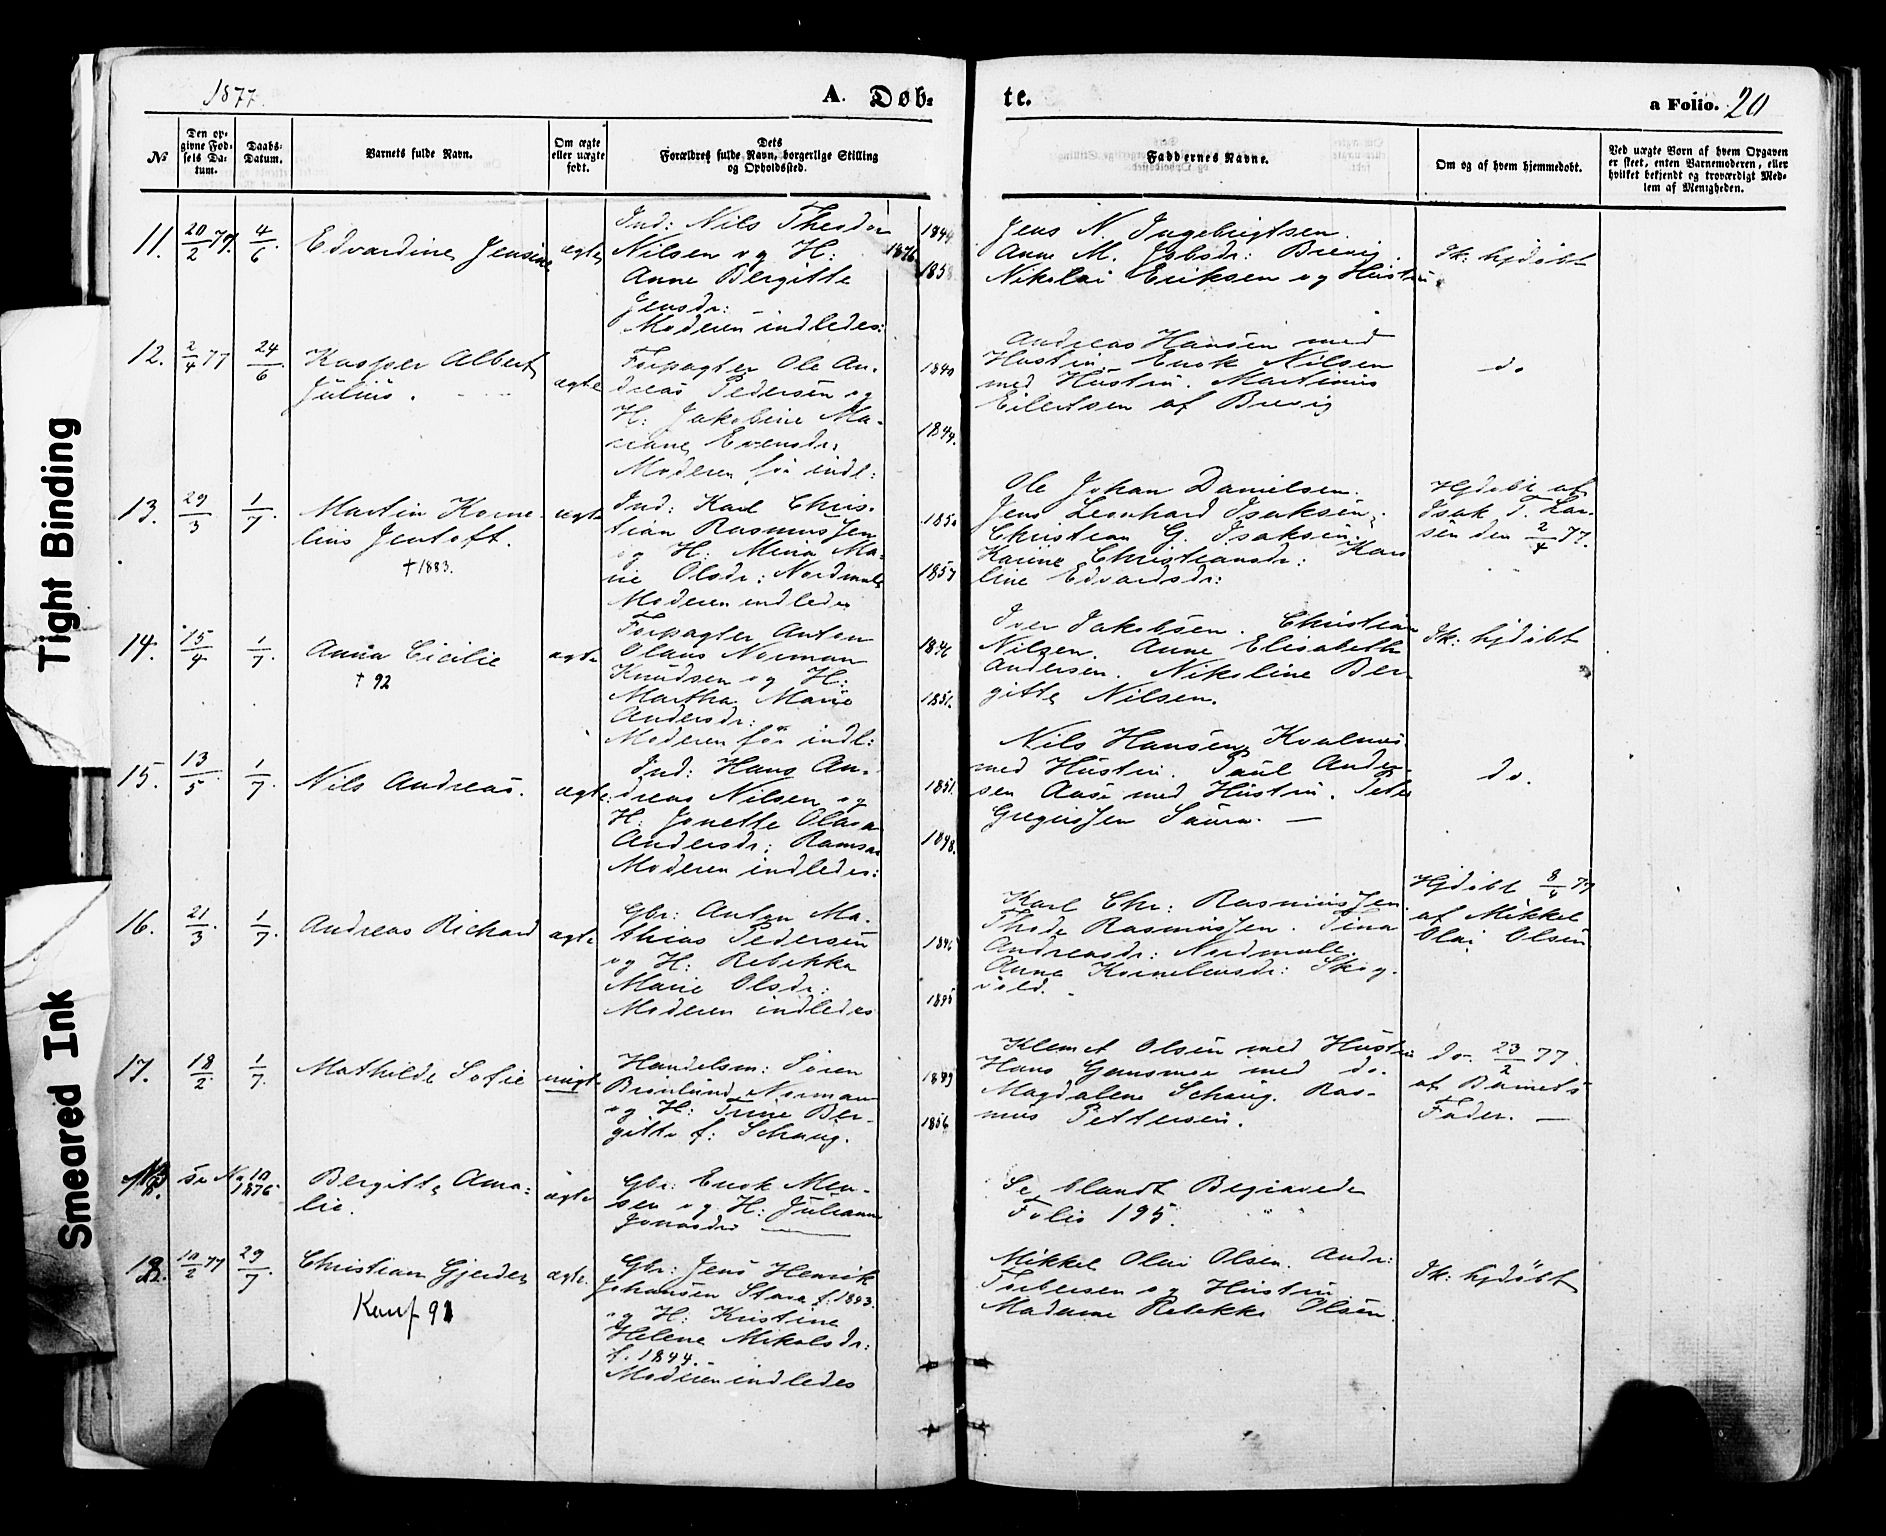 Tight Binding
Smeared Ink
1877.
A. Døb-
te.
a Folio. 20
No
Den op-
givne Fød-
sels Da-
tum.
Daabs-
Datum.
Barnets fulde Navn.
Om ægte
eller uægte
født.
Dets
Forældres fulde Navn, borgerlige Stilling
og Opholdssted.
Faddernes Navne.
Om og af hvem hjemmedøbt.
Ved uægte Børn af hvem Opgaven
er skeet, enten Barnemoderen, eller
hvilket bekjendt og troværdigt Med-
lem af Menigheden.
11. 20/2 77. 4/6 Edvardine Jensine ægte
Ind: Nils Theodor
Nilsen og H:
Anne Bergitte
Jensdr:
Moderen indledes:
1876
1844
1858
Jens N. Ingebrigtsen.
Anne M. Jobsdr: Brevig.
Nikolai Eriksen og Hustru.
Ik: hjdøbt
12. 2/4 77 24/6 Kasper Albert
Julius.
ægte
Forpagter Ole An-
dreas Pedersen og
H: Jakobine Ma-
riane Evensdr:
Moderen før indl:
1840
1844.
Andreas Hansen med
Hustru Enok Nilsen
med Hustru. Martinus
Eilertsen af Brevig
do
13. 29/3 1/7. Martin Korne-
lius Jentoft.
†1883.
ægte
Ind: Karl Chris-
tian Rasmussen
og H: Mina Ma-
rie Olsdr: Nordmule
Moderen indledes
1850
1857
Ole Johan Danielsen.
Jens Leonhard Isaksen,
Christian G. Isaksen.
Karine Christiansdr: Karo
line Edvardsdr:
Hjdøbt af
Isak T. Lar-
sen den 2/4 77.
14. 15/4 1/7. Anna Cicilie
† 92
ægte
Forpagter Anton
Olaus Norman
Knudsen og H:
Martha Marie
Andersdr:
Moderen før indl:
1846
1851.
Iver Jakobsen. Christian
Nilsen. Anne Elisabeth
Andersen. Nikoline Ber-
gitte Nilsen.
Ik: hjdøbt
15. 13/5 1/7 Nils Andreas.
ægte:
Ind: Hans An-
dreas Nilsen og
H: Jonette Olava
Andersdr: Ramsaa
Moderen indledes:
1851.
1848.
Nils Hansen Kvalnes
med Hustru. Paul Ander-
sen Aase med Hustru. Peter
Gregussen Saura. —
do.
16. 21/3 1/7. Andreas Richard ægte
Gbr: Anton Ma-
thias Pedersen
og H: Rebekka
Marie Olsdr:
Moderen indledes
1846
1845
Karl Chr: Rasmussen.
Thode Rasmussen. Tina
Andreasdr: Nordmule.
Anna Korneliusdr: Skog-
vold.
Hjdøbt 8/4 77
af Mikkel
Olai Olsen
17. 18/2 1/7. Mathilde Sofie
Handelsm: Sören
Brønlund Norman
og H: Trine Ber-
gitte f: Schaug.
1849
1856
Klemet Olsen med Hustru
Hans Gaasmoe med do.
Magdalene Schaug. Ras-
mus Pettersen.
do 23/2 77.
af Barnets
Fader. —
se No 10
1876. Bergitte Ama-
lie.
ægte
Gbr: Enok Men-
sen og H: Julianne
Jonasdr
Se blandt Begravede
Folio 195.
18. 10/2 77 29/7. Christian Gjerder ægte.
Konf 91
Gbr: Jens Henrik
Johansen Stave f. 1843.
og H: Kristine
Helene Mikalsdr:
f. 1844.
Moderen indledes
Mikkel Olai Olsen. Andr:
Torbersen og Hustru
Madame Rebekka Olsen.
Ik: hjdøbt